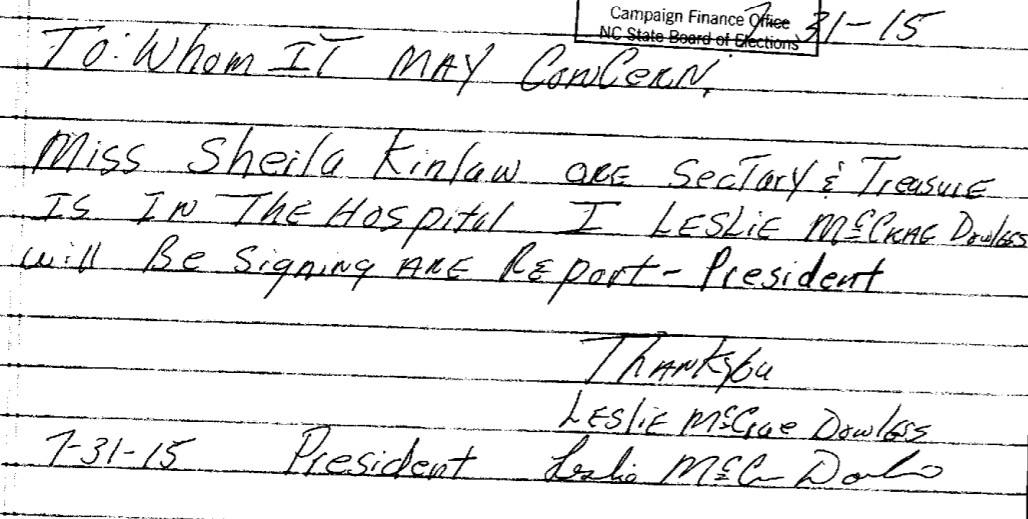 Campaign Finance Office
NC State Board of Elections
7-31-15
To: Whom IT MAY ConCeRN,
Miss Sheila Kinlaw ARE SecTary & Treasure
Is In The Hospital I LESLiE McCRAE Dowless
will Be Signing ARE REport - President
Thankyou
LESLiE McCrae Dowless
7-31-15 President Leslie McCrae Dowless